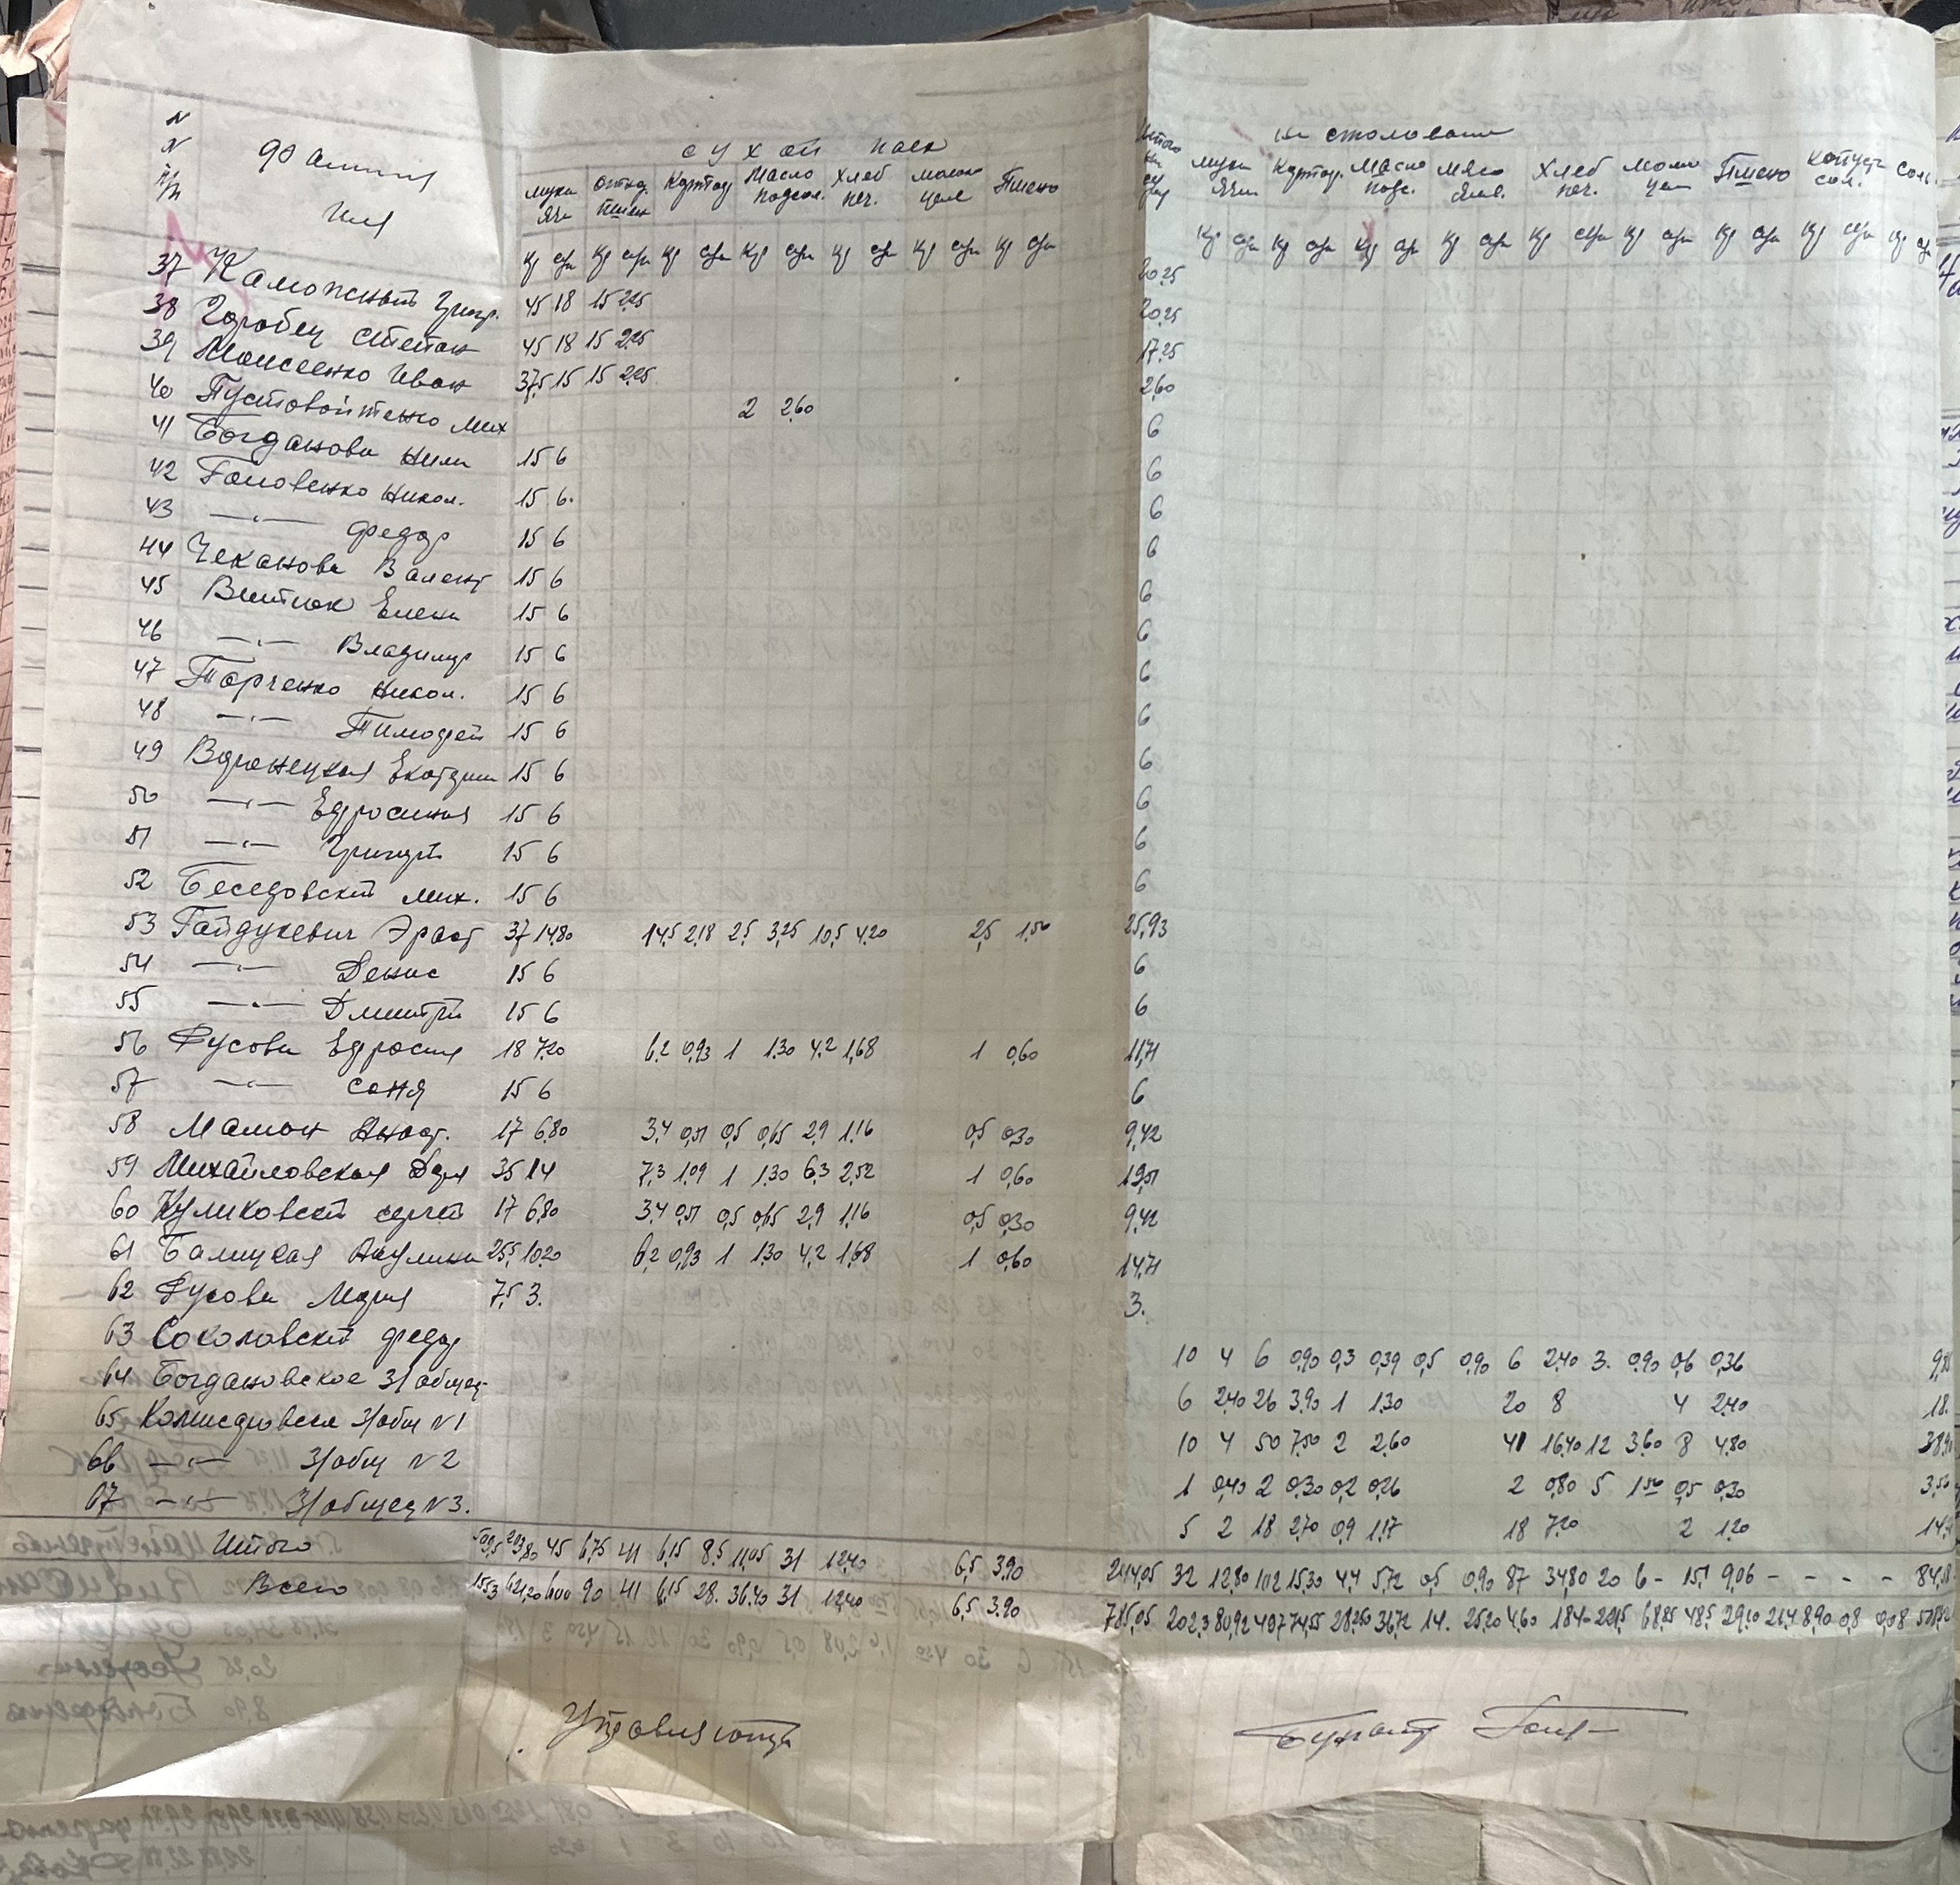 N
N п/п Фамилия Имя сухой паек Итого на столовани
мука ячм отход. пшен Картоф Масло подсол. Хлеб печ. молоко цел Пшено мука ячм Картоф. Масло подс. мясо Хлеб печ. молоко цел Пшено капуста сол. соль
кг сум кг сум кг сум кг сум кг сум кг сум кг сум кг сум кг сум кг сум кг сум кг сум кг сум кг сум кг сум кг сум
37 45 18 15 2,25 20,25
38 Горобец Степан 45 18 15 2,25 20,25
39 Моисеенко Иван 37,5 15 15 2,25 17,25
40 Пустовойтенко Мих 2 2,60 2,60
41 Богданова Нина 15 6 6
42 Никол. 15 6. 6
43 —"— Федор 15 6 6
44 Чеканова Валент 15 6 6
45 Елена 15 6 6
46 —"— Владимир 15 6 6
47 Торченко Никол. 15 6 6
48 —"— Тимофей 15 6 6
49 Воронецкая Екатерин 15 6 6
50 —"— Ефросиния 15 6 6
51 —"— Григорий 15 6 6
52 Беседовский Мих. 15 6 6
53 Гайдукевич Эраст 37 14,80 14,5 2,18 2,5 3,25 10,5 4,20 2,5 1,50 25,93
54 —"— Денис 15 6 6
55 —"— Дмитрий 15 6 6
56 Фусова Ефросин 18 7,20 6,2 0,93 1 1,30 4,2 1,68 1 0,60 11,71
57 —"— Соня 15 6 6
58 Мамон Анаст. 17 6,80 3,4 0,51 0,5 0,65 2,9 1,16 0,5 0,30 9,42
59 Михайловская Дар 35 14 7,3 1,09 1 1,30 6,3 2,52 1 0,60 19,51
60 Куликовский Сергей 17 6,80 3,4 0,51 0,5 0,65 2,9 1,16 0,5 0,30 9,42
61 Балицкая Акулина 25,5 10,20 6,2 0,93 1 1,30 4,2 1,68 1 0,60 14,71
62 Фусова Мария 7,5 3. 3.
63 Соколовский Федор 10 4 6 0,90 0,3 0,39 0,5 0,90 6 2,40 3. 0,90 0,6 0,36
64 Богдановское З/общес 6 2,40 26 3,90 1 1,30 20 8 4 2,40 18.
65 З/общ N1 10 4 50 7,50 2 2,60 41 16,40 12 3,60 8 4,80
66 —"— З/общ N2 1 0,40 2 0,30 0,2 0,26 2 0,80 5 1,50 0,5 0,30
67 —"— З/общес N3. 5 2 18 2,70 0,9 1,17 18 7,20 2 1,20
Итого 509,5 203,80 45 6,75 41 6,15 8,5 11,05 31 12,40 6,5 3,90 244,05 32 12,80 102 15,30 4,4 5,72 0,5 0,90 87 34,80 20 6 - 15,1 9,06 - - - -
Всего 1553 621,20 600 90 41 6,15 28. 36,40 31 12,40 6,5 3.90 202,3 80,92 497 74,55 14. 25,20 460 184- 68,85 48,5 29,10 8,90 0,8 0,08
Управляющий